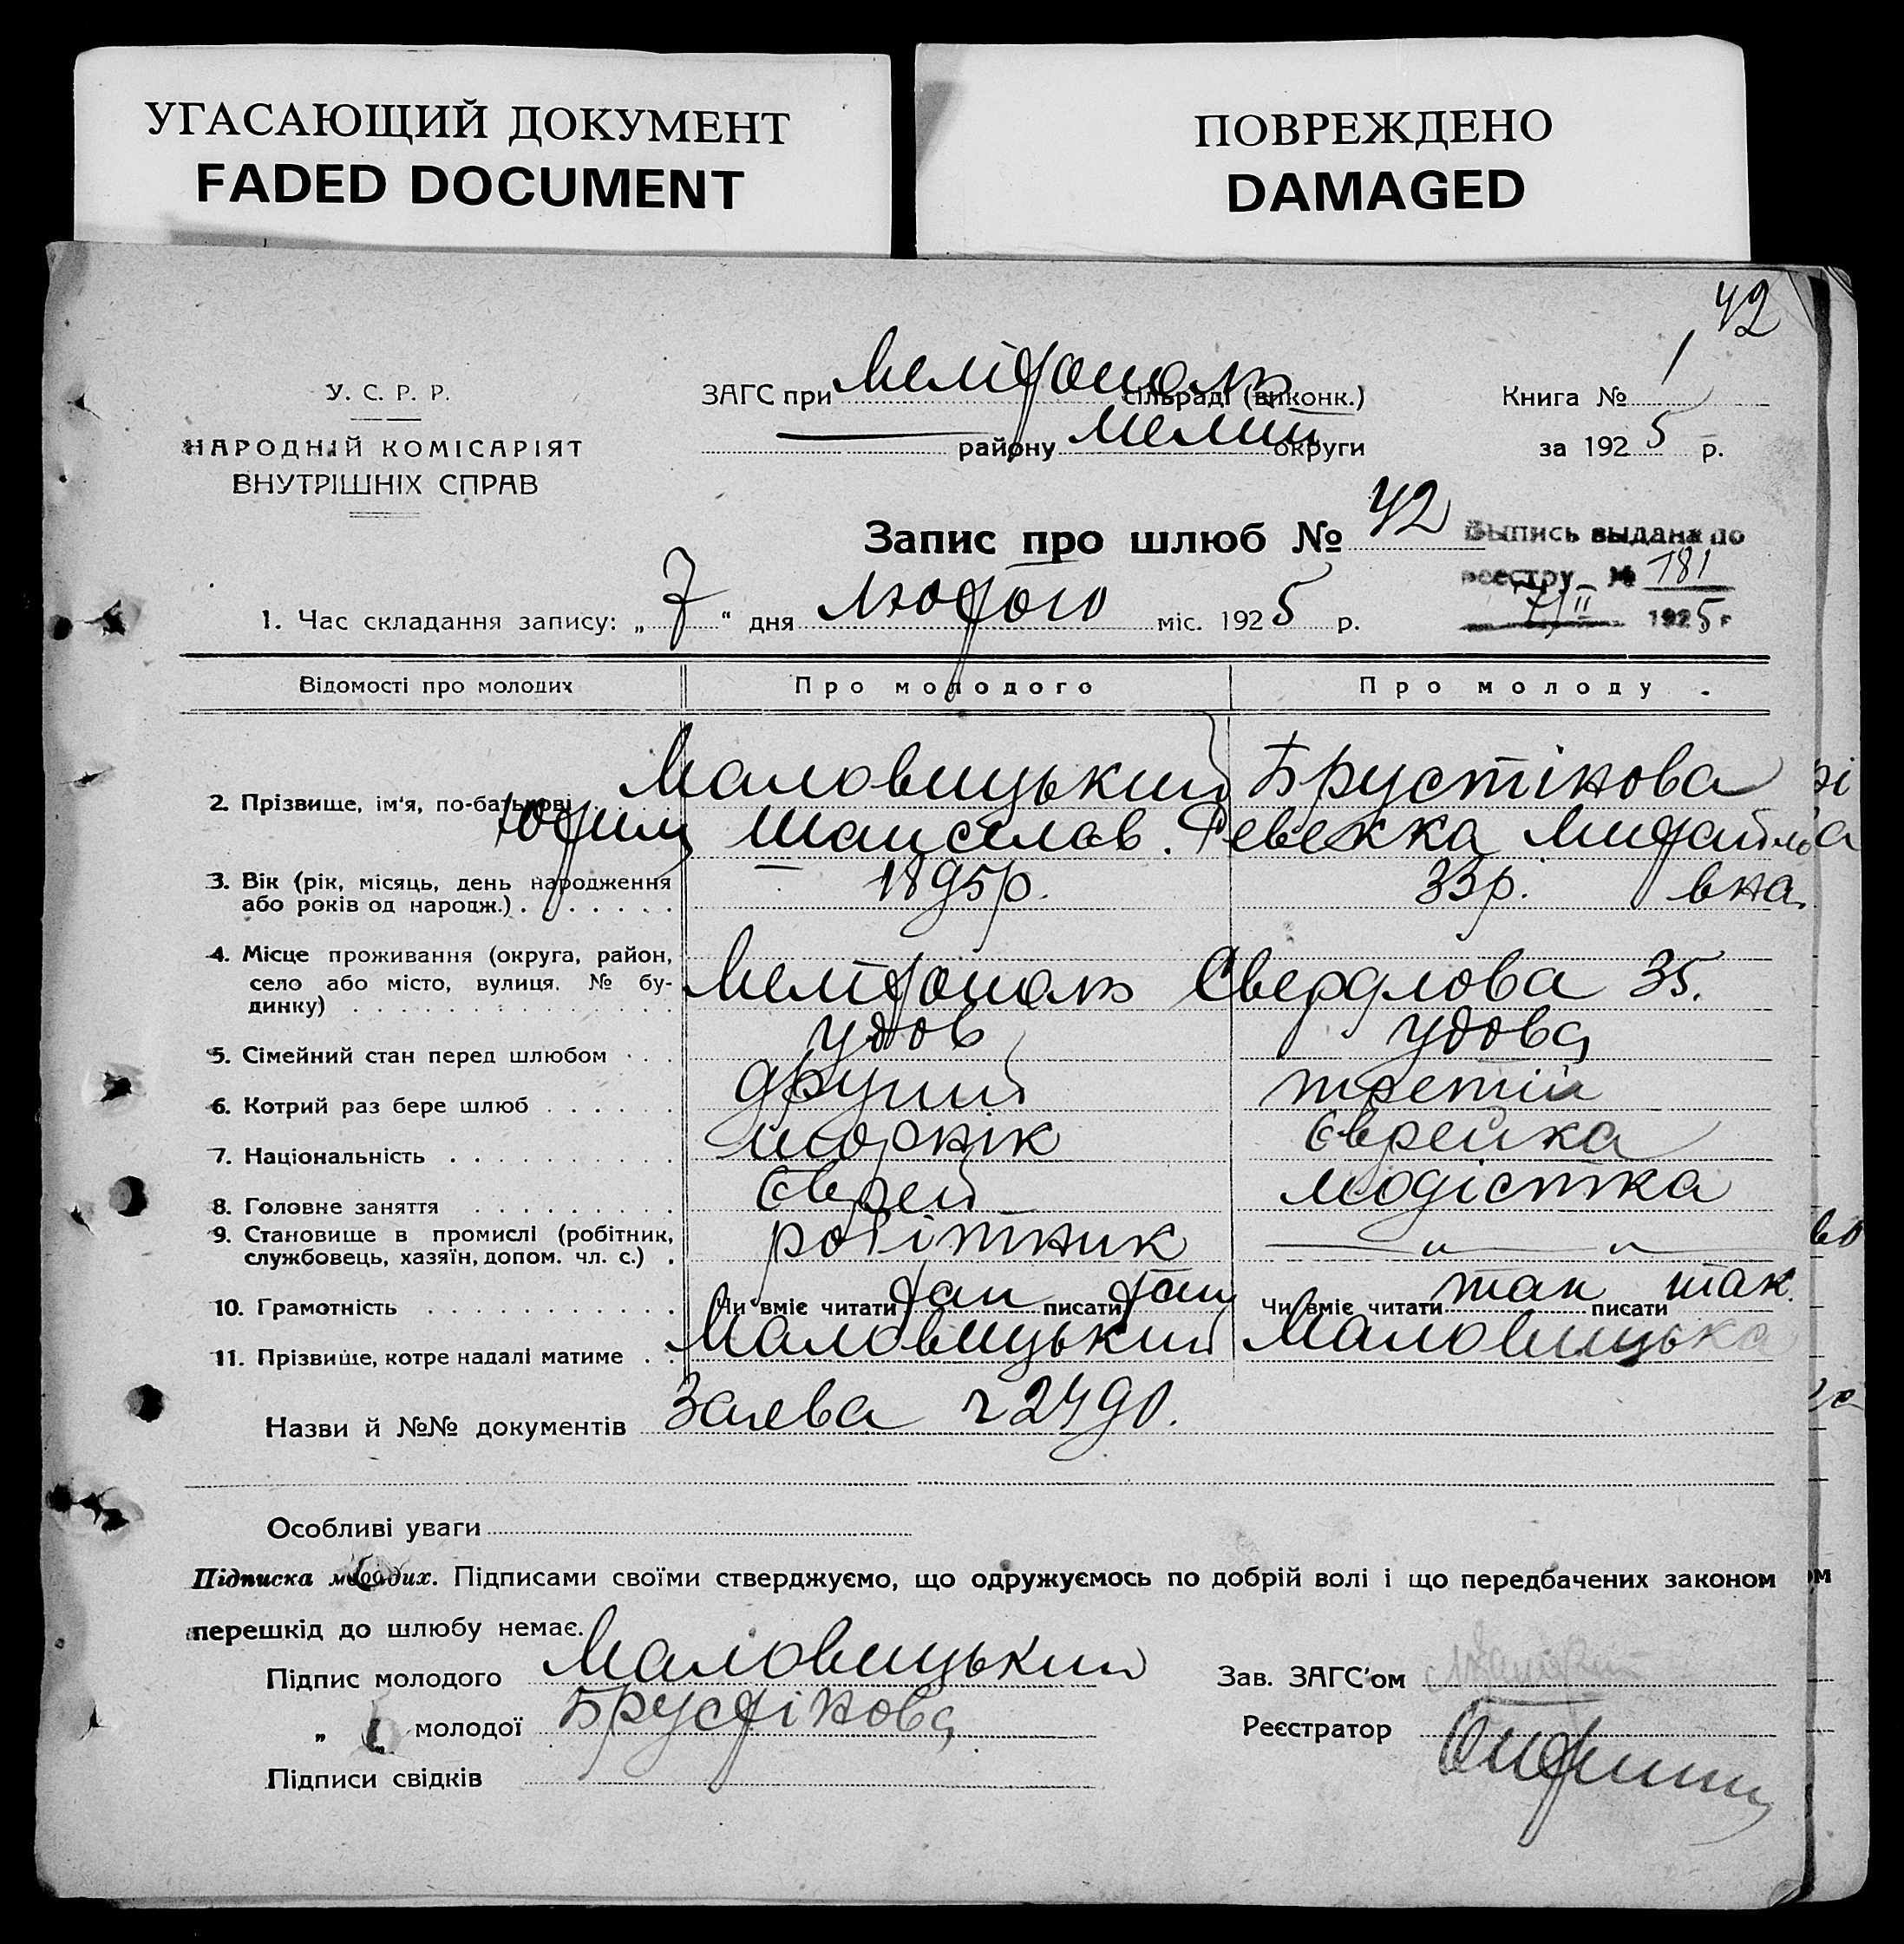 УГАСАЮЩИЙ ДОКУМЕНТ
FADED DOCUMENT
ПОВРЕЖДЕНО
DAMAGED
42
У. С. Р. Р.
НАРОДНІЙ КОМІСАРІЯТ
ВНУТРІШНІХ СПРАВ
ЗАГС при Мелітополь сільраді (виконк.)
району Меліт округи
Книга № 1
за 1925 р.
Запис про шлюб № 42
Выпись выдана по
реестру № 181
7/II 1925 г
1. Час складання запису: „ 7 " дня Лютого міс. 1925 р.
Відомості про молодих Про молодого Про молоду
2. Прізвище, ім'я, по-батькові Маловицький Брустінова
Юхим Шапселев. Ревекка Михайлі
вна
3. Вік (рік, місяць, день народження 1895р. 33р.
або років од народж.)
4. Місце проживання (округа, район,
село або місто, вулиця, № бу- Мелітополь Свердлова 35.
динку)
5. Сімейний стан перед шлюбом удов удова
6. Котрий раз бере шлюб другий третій
7. Національність Єврейка
8. Головне заняття Єврей модістка
9. Становище в промислі (робітник, робітник — „ — „ —
службовець, хазяїн, допом. чл. с.)
10. Грамотність Чи вміє читати так писати так Чи вміє читати так писати так.
11. Прізвище, котре надалі матиме Маловицький Маловицька
Назви й №№ документів Заява ч 2490.
Особливі уваги
Підписка молодих. Підписами своїми стверджуємо, що одружуємось по добрій волі і що передбачених законом
перешкід до шлюбу немає.
Підпис молодого Маловицький
Зав. ЗАГС'ом
„ молодої Брустінова
Реєстратор
Підписи свідків